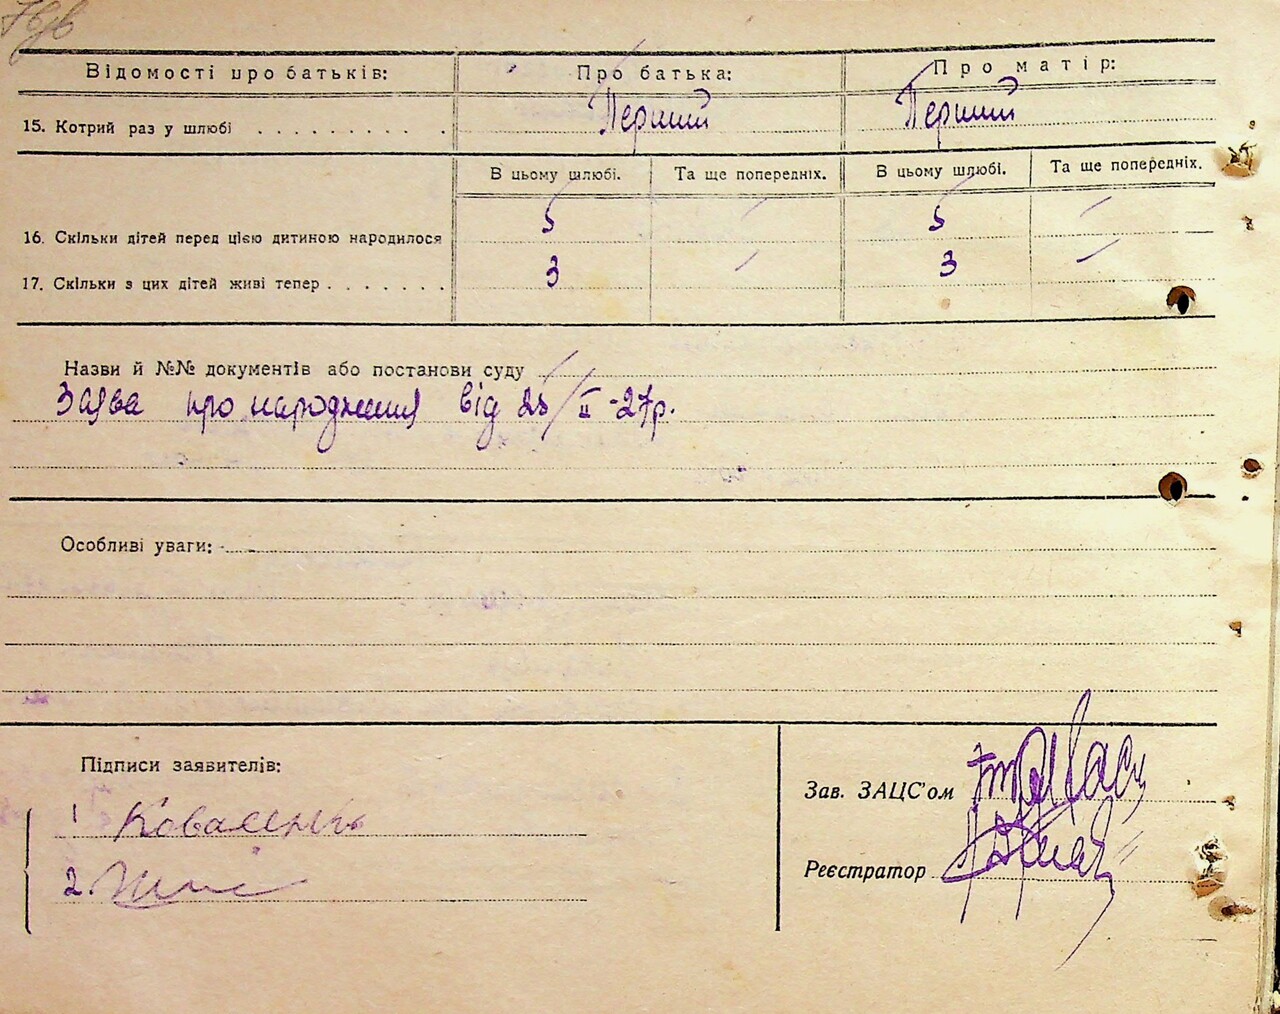 Відомості про батьків: Про батька: Про матір:
15. Котрий раз у шлюбі . . . . . . . . . . Перший Перший
В цьому шлюбі. Та ще попередніх. В цьому шлюбі. Та ще попередніх.
16. Скільки дітей перед цією дитиною народилося 5 — 5 —
17. Скільки з цих дітей живі тепер . . . . . . . 3 — 3 —
Назви й №№ документів або постанови суду
Заява про народження від 25/II-27р.
Особливі уваги:
Підписи заявителів:
Зав. ЗАЦС'ом
1 Коваленко
Реєстратор
2.